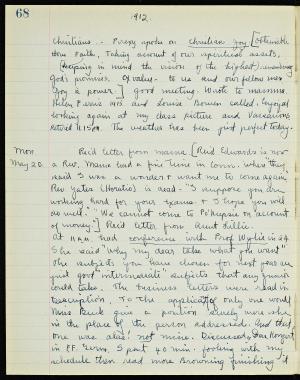 68
1912.
Christians. - Pussy spoke on Christian joy [obtainable
from Faith, Taking account of our spiritual assets,
Keeping in mind the vision of the highest, remembering
God's promises. Of value - to us and our fellow men
joy is power.] good meeting. Wrote to mamma.
Helen Farris 1915 and Louise Bowen called. Enjoyed
looking again at my class picture and Vacations.
Retired 11:50 P.M. The weather has been just perfect today.
Mon
May 20.
Rec'd letter from mama [Reid Edwards is now
a Rev. Mama had a fine time in Conn. when they
said I was a wonder & want me to come again.
Rev. Gates (Horatio) is dead - "I suppose you are
working hard for your exams & I hope you will
do well". We cannot come to Po'keepsie on account
of money.] Rec'd letter from Aunt Lillie.
At 11 A.M. had conference with Prof. Wylie in 24
She said "Why my dear take what you want"
The subjects you have chosen for next year are
just good "intermediate" subjects that any junior
could take. The business letters were read in
Description. To the applicants only one would
Miss Buck give a position surely were she
in the place of the person addressed. And that
one was alas! not mine. Discussed Dan
in P.E. Seven. Spent 40 min. fooling with my
schedule then read more Browning finishing "A